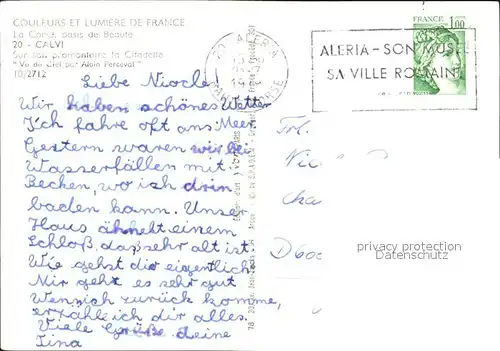 COULEURS ET LUMIÈRE DE FRANCE
La Corse, Oasis de Beauté
20 - CALVI
Sur son promontoire la Citadelle
"Vu du Ciel par Alain Perceval"
10/2712
Liebe Nicole!
Wir haben schönes Wetter
Ich fahre oft ans Meer
Gestern waren wir bei
Wasserfällen mit
Becken, wo ich drin
baden kann. Unser
Haus ähnelt einem
Schloß, das sehr alt ist.
Wie gehst dir eigentlich
Mir geht es sehr gut
Wenn ich zurück komme,
erzähle ich dir alles.
Viele Grüße deine
Tina
FRANCE
1,00
ALERIA - SON MUSE
SA VILLE ROMAINE
Frl.
D600
privacy protection
Datenschutz